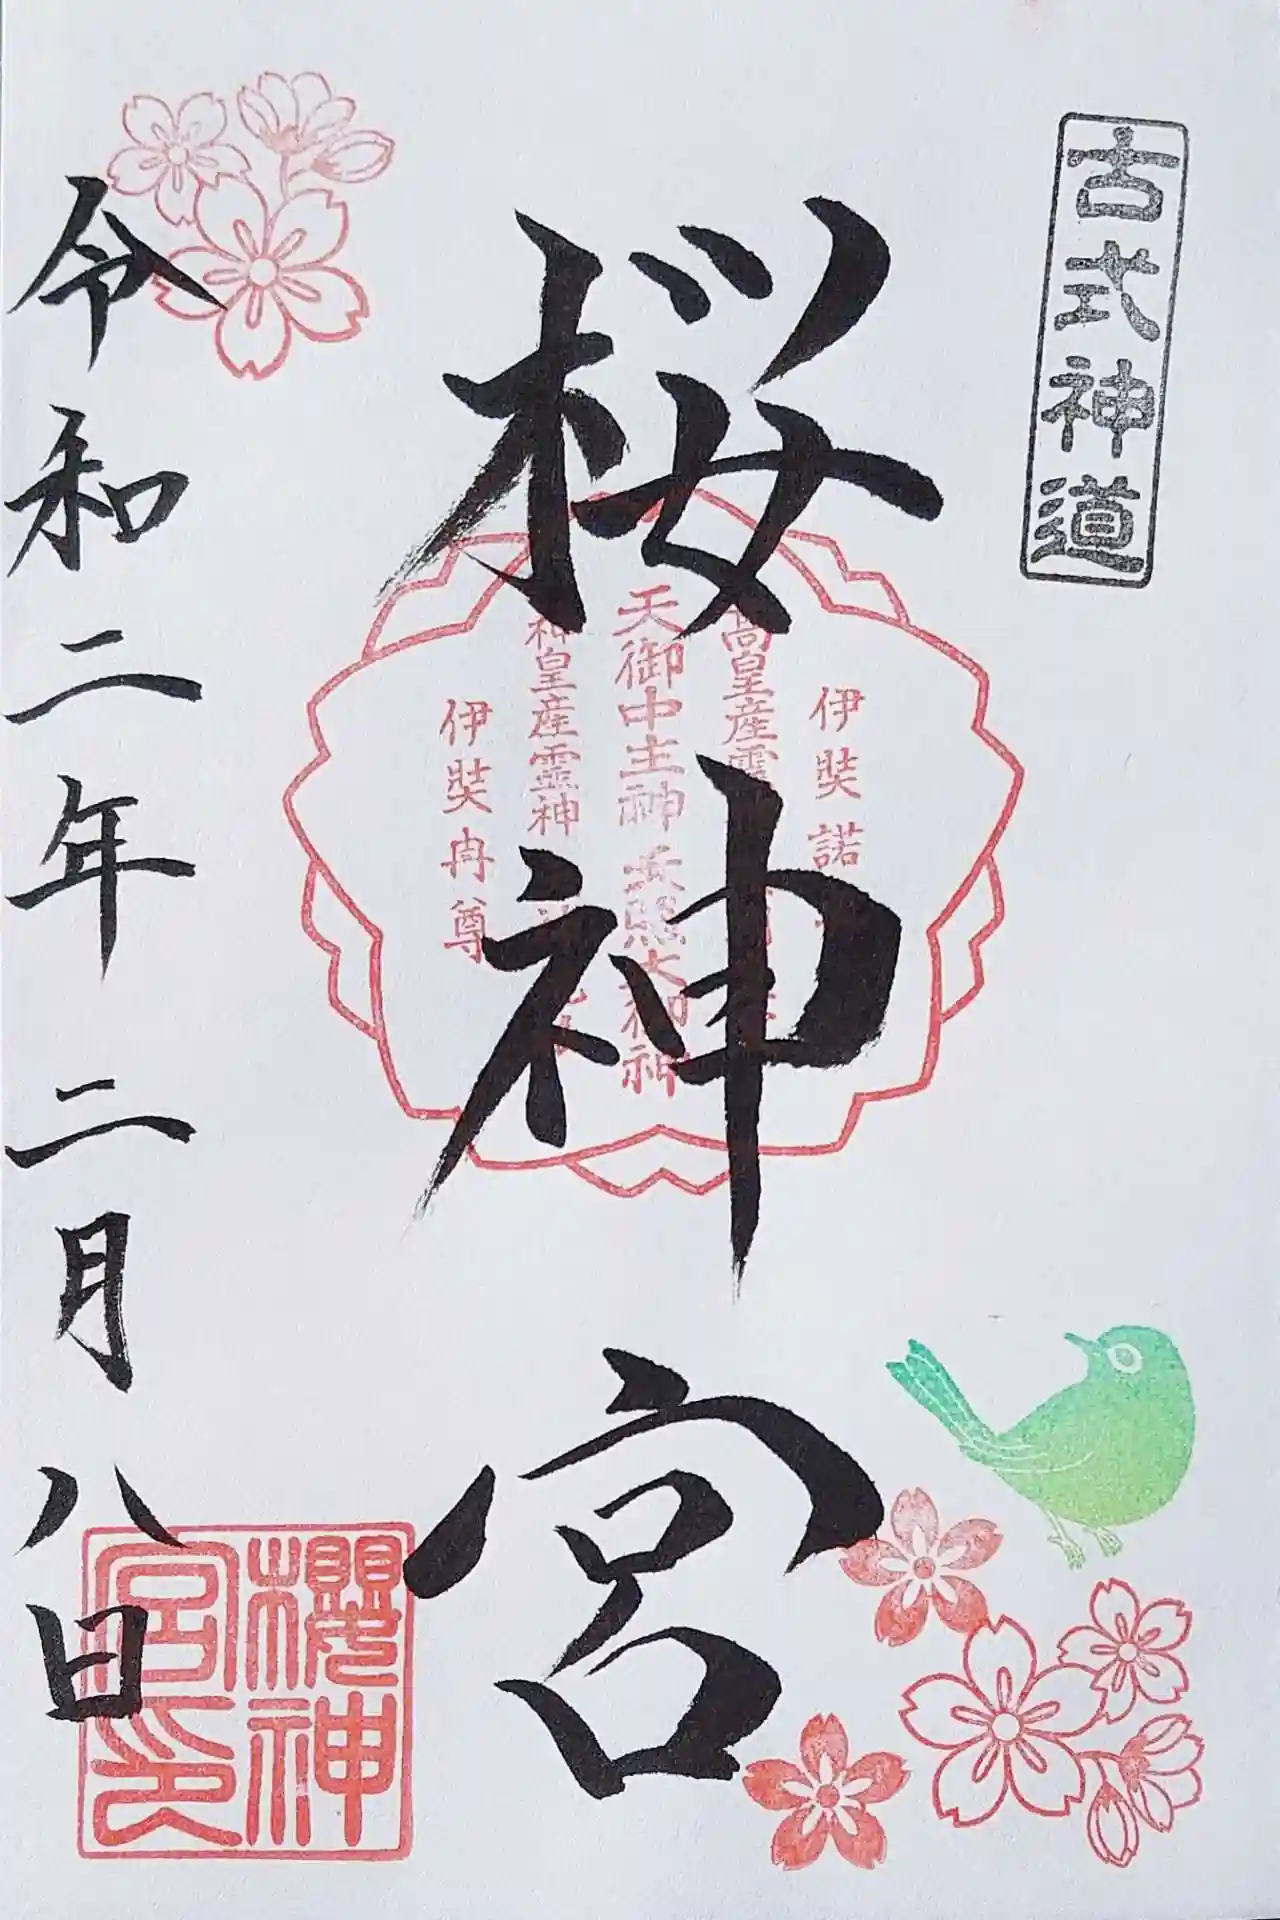 古式神道
桜神宮
伊弉諾
高皇産靈
天御中主神 天照大御神
神皇産霊神
伊弉冉尊
令和二年二月八日
櫻神
宮印